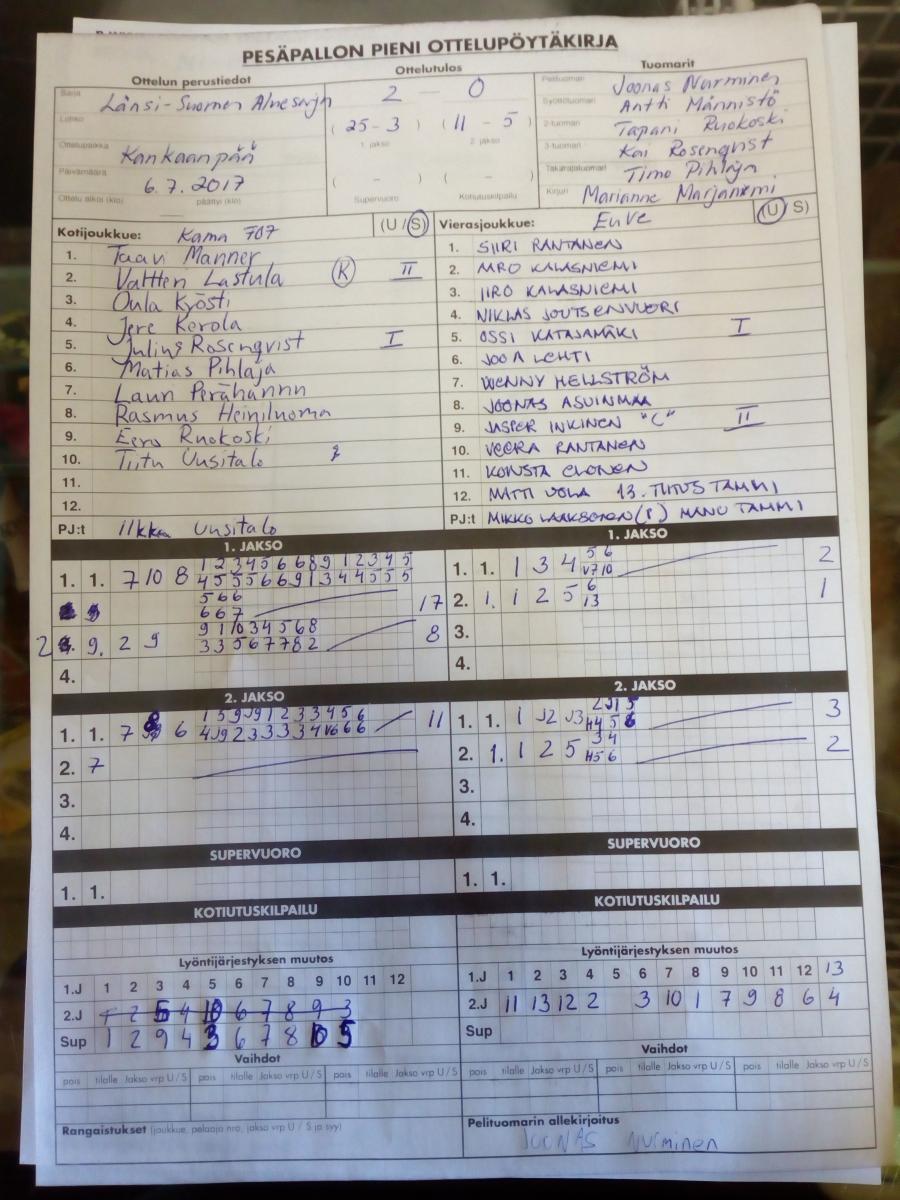 PESÄPALLON PIENI OTTELUPÖYTÄKIRJA
Ottelun perustiedot
Sarja Länsi-Suomen Aluesarja
Lohko
Ottelupaikka Kankaanpää
Päivämäärä 6.7.2017
Ottelu alkoi (klo) päättyi (klo)
Ottelutulos
2 - 0
( 25 - 3 ) ( 11 - 5 )
1. jakso 2. jakso
( - ) ( - )
Supervuoro Kotiutuskilpailu
Tuomarit
Pelituomari Joonas Nurminen
Syöttötuomari Antti Männistö
2-tuomari Tapani Ruokoski
3-tuomari Kai Rosenqvist
Takarajatuomari Timo Pihlaja
Kirjuri Marianne Marjaniemi
Kotijoukkue: Kama 707 (U / S)
1. Taavi Manner
2. Valtteri Lastula K II
3. Oula Kyösti
4. Jere Kerola
5. Julius Rosenqvist I
6. Matias Pihlaja
7. Lauri
8. Rasmus Heiniluoma
9. Eero Ruokoski
10. Tiitu Uusitalo
11.
12.
PJ:t Ilkka Uusitalo
Vierasjoukkue: EuVe (U / S)
1. SIIRI RANTANEN
2. KALASNIEMI
3. IIRO KALASNIEMI
4. NIKLAS JOUTSENVUORI
5. OSSI KATAJAMÄKI I
6. JOOA LEHTI
7. WENNY HELLSTRÖM
8. JOONAS ASUINMAA
9. JASPER INKINEN "C" II
10. VEERA RANTANEN
11. KONSTA ELONEN
12. MATTI UOLA 13. TIITUS TAMMI
PJ:t MIKKO LAAKSONEN MANU TAMMI
1. JAKSO
1 2 3 4 5 6 6 8 9 1 2 3 4 5
1. 1. 7 10 8 4 5 5 5 6 6 9 1 3 4 4 5 5 5
5 6 6
6 6 7 17
9 1 10 3 4 5 6 8
2 9. 2 9 3 3 5 6 7 7 8 2 8
4.
1. JAKSO
1. 1. 1 3 4 5 6 2
V7 10
2. 1. 1 2 5 6 1
13
3.
4.
2. JAKSO
1 5 9 J9 1 2 3 3 4 5 6
1. 1. 7 6 4 J9 2 3 3 3 3 4 V6 6 6 11
2. 7
3.
4.
2. JAKSO
1. 1. 1 J2 J3 3
2. 1. 1 2 5 3 4 2
H5 6
3.
4.
SUPERVUORO
1. 1.
SUPERVUORO
1. 1.
KOTIUTUSKILPAILU
KOTIUTUSKILPAILU
Lyöntijärjestyksen muutos
1.J 1 2 3 4 5 6 7 8 9 10 11 12
2.J 1 2 5 4 10 6 7 8 9 3
Sup 1 2 9 4 3 6 7 8 10 5
Lyöntijärjestyksen muutos
1.J 1 2 3 4 5 6 7 8 9 10 11 12 13
2.J 11 13 12 2 3 10 1 7 9 8 6 4
Sup
Vaihdot
pois tilalle Jakso vrp U / S pois tilalle Jakso vrp U / S pois tilalle Jakso vrp U / S
Vaihdot
pois tilalle Jakso vrp U / S pois tilalle Jakso vrp U / S pois tilalle Jakso vrp U / S
Rangaistukset (joukkue, pelaaja nro, jakso vrp U / S ja syy)
Pelituomarin allekirjoitus
JOONAS NURMINEN